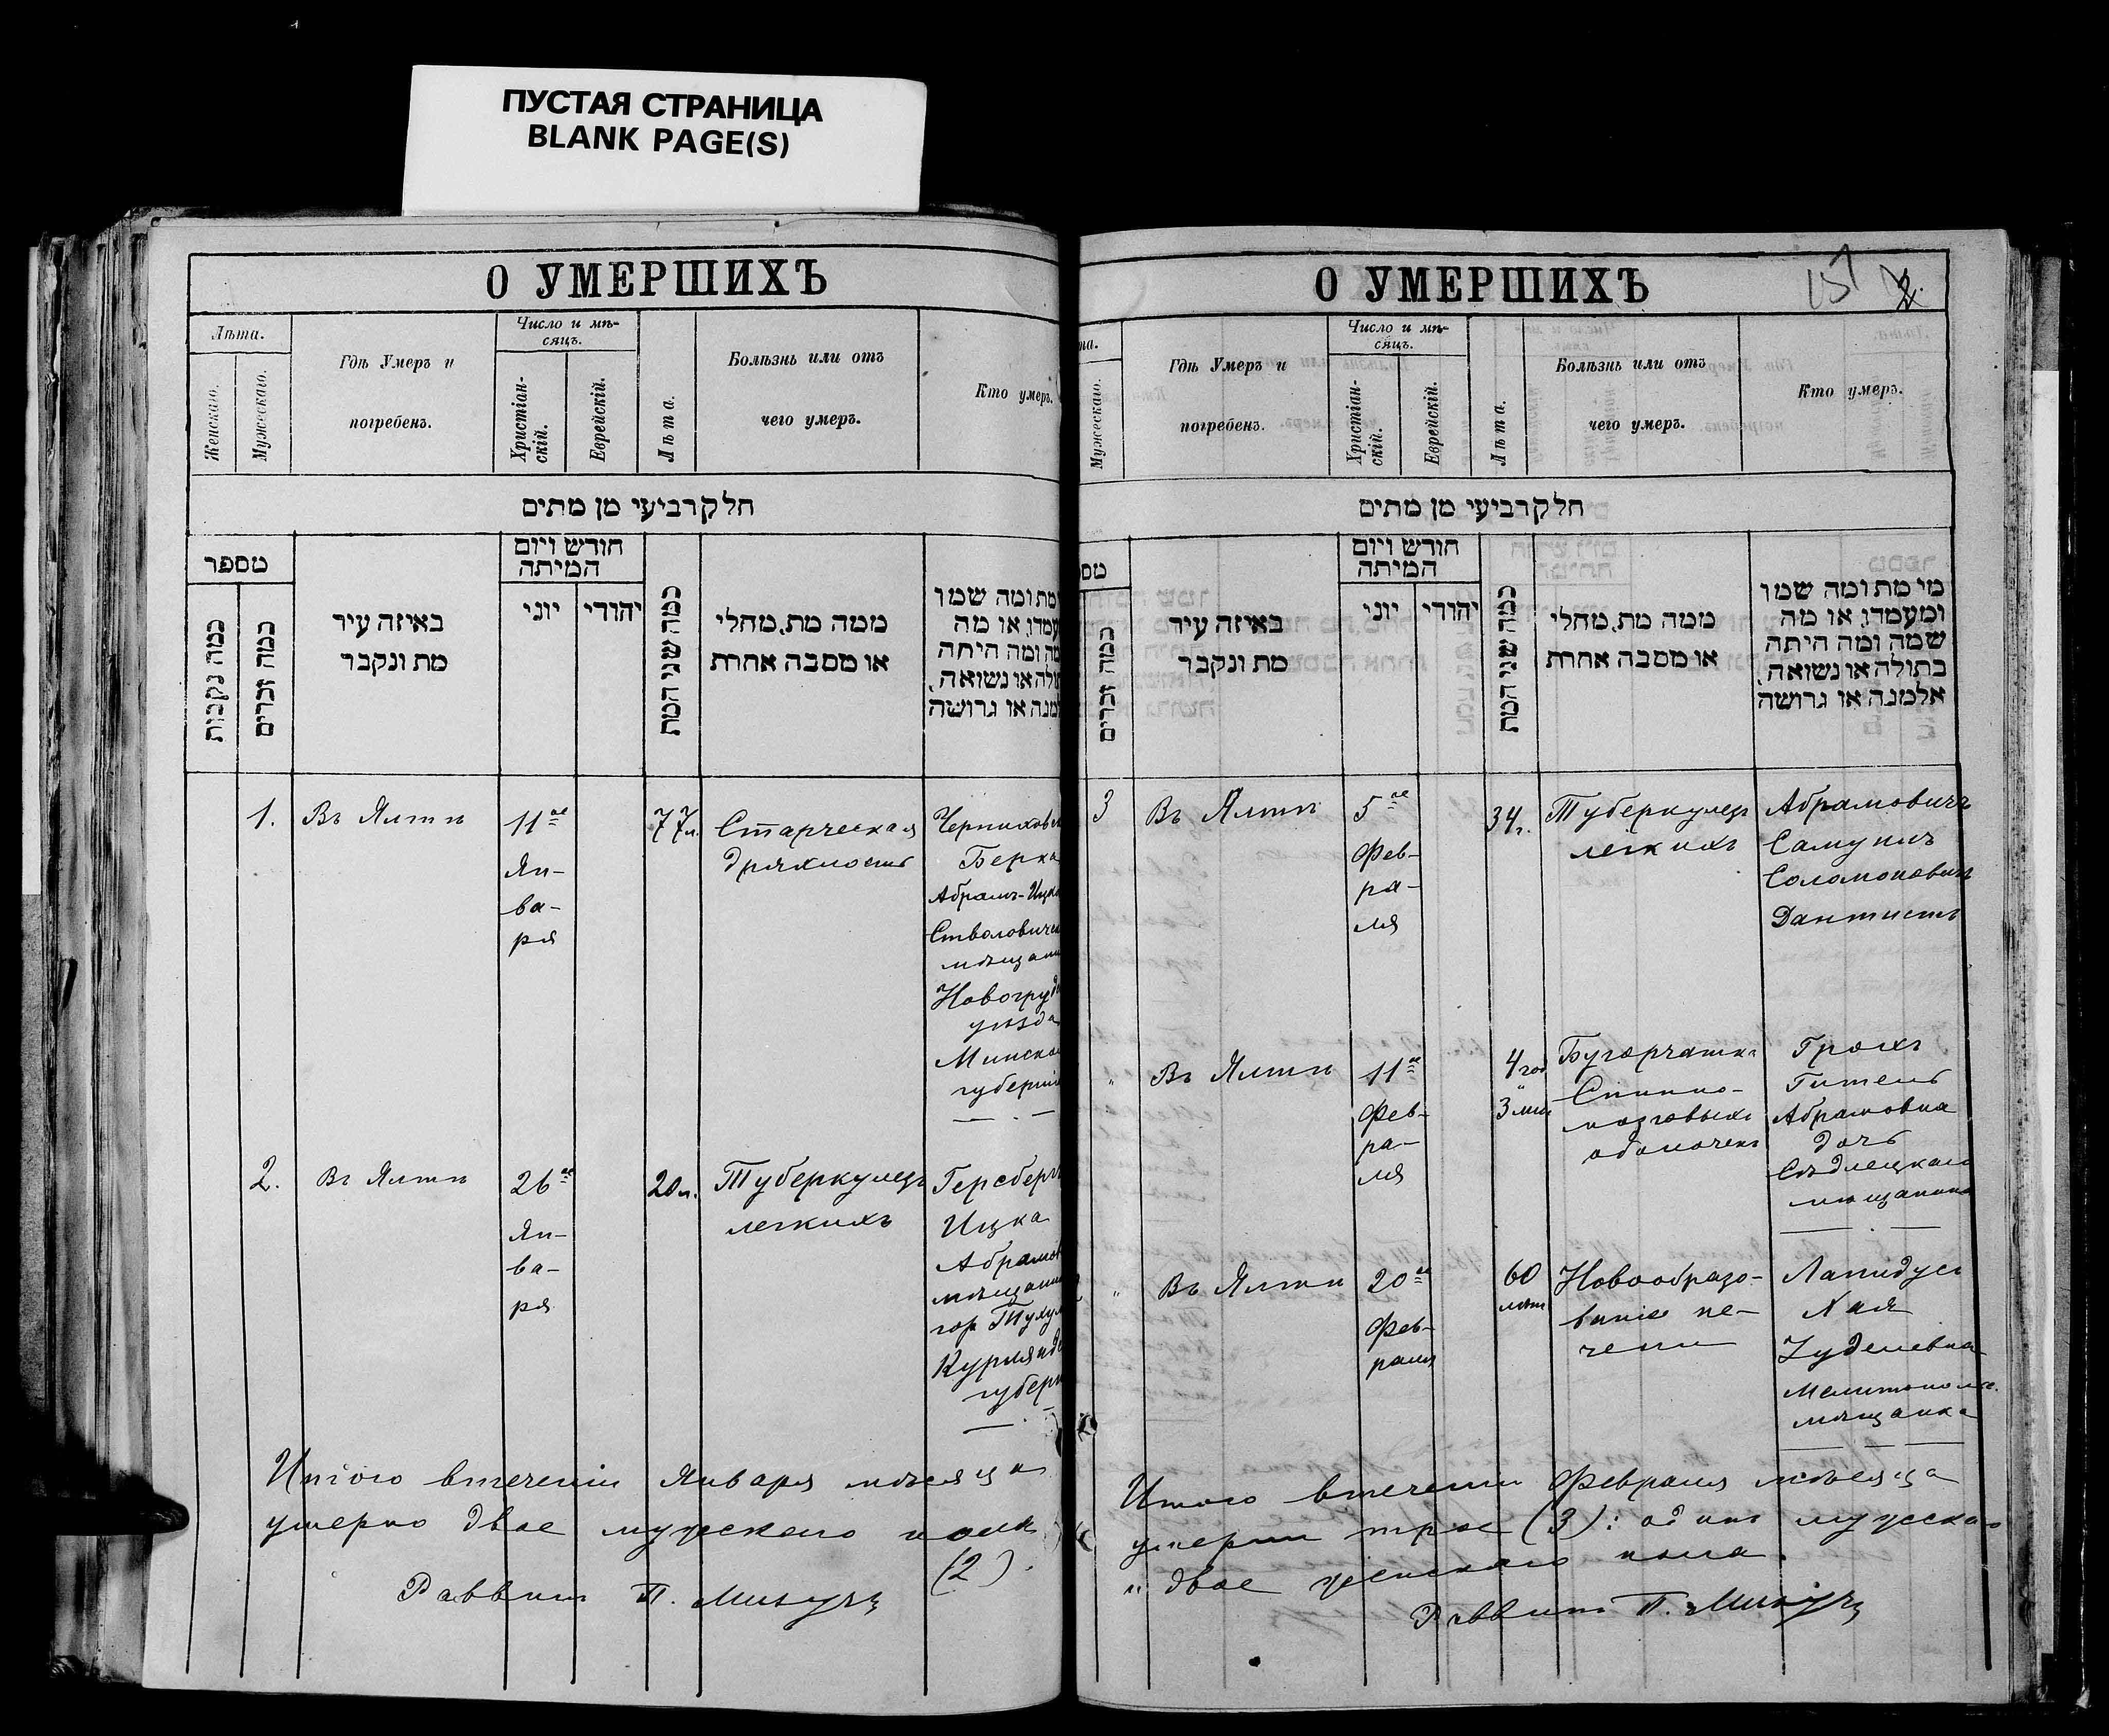 ПУСТАЯ СТРАНИЦА
BLANK PAGE(S)
О УМЕРШИХЪ
Лѣта.
Женскаго.
Мужескаго.
Гдѣ Умеръ и
погребенъ.
Число и мѣ-
сяцъ.
Христіан-
скій.
Еврейскій.
Лѣта.
Болѣзнь или отъ
чего умеръ.
Кто умеръ.
חלק רביעי מן מתים
מספר
כמה נקבות
כמה זכרים
באיזה עיר
מת ונקבר
חודש ויום
המיתה
יוני
יהודי
כמה שני המת
ממה מת, מחלי
או מסבה אחרת
מת ומה שמו
עמדו, או מה
מה ומה היתה
ולה או נשואה,
מנה או גרושה
1.
Въ Ялтѣ
11ое
Ян-
ва-
ря
77л.
Старческая
дряхлость
Берка
Абрамъ-Ицко
мѣщани
Новогруд
уѣзда
Минско
губерніи
2.
Въ Ялтѣ
26ое
Ян-
ва-
ря
20л.
Туберкулезъ
легкихъ
Герсберг
Ицка
Абрамов
мѣщани
гор. Туку
Курлянд
губерн
Итого втеченіи Января мѣсяца
умерло двое мужского пола
(2).
Раввинъ П.
О УМЕРШИХЪ
157
2.
та.
Мужескаго.
Гдѣ Умеръ и
погребенъ.
Число и мѣ-
сяцъ.
Христіан-
скій.
Еврейскій.
Лѣта.
Болѣзнь или отъ
чего умеръ.
Кто умеръ.
חלק רביעי מן מתים
מס
כמה זכרים
באיזה עיר
מת ונקבר
חודש ויום
המיתה
יוני
יהודי
כמה שני המת
ממה מת, מחלי
או מסבה אחרת
מי מת ומה שמו
ומעמדו, או מה
שמה ומה היתה
בתולה או נשואה,
אלמנה או גרושה
3
Въ Ялтѣ
5ое
Фев-
ра-
ля
34г.
Туберкулезъ
легкихъ
Абрамовичъ
Самуилъ
Соломоновичъ
Дантистъ
"
Въ Ялтѣ
11ое
Фев-
ра-
ля
4 год
3 мѣс
Бугорчатка
Спинно-
мозговыхъ
оболочекъ
Гитель
Абрамовна
дочь
Сѣдлецкаго
мѣщанина
"
Въ Ялтѣ
20ое
Фев-
раля
60
лѣт
Новообразо-
ваніе пе-
чени
Лапидус
Хая
Зуделевна
Мелитополь.
мѣщанка
Итого втеченіи Февраля мѣсяца
умерли трое (3): одинъ мужского
и двое женскаго пола.
Раввинъ П.